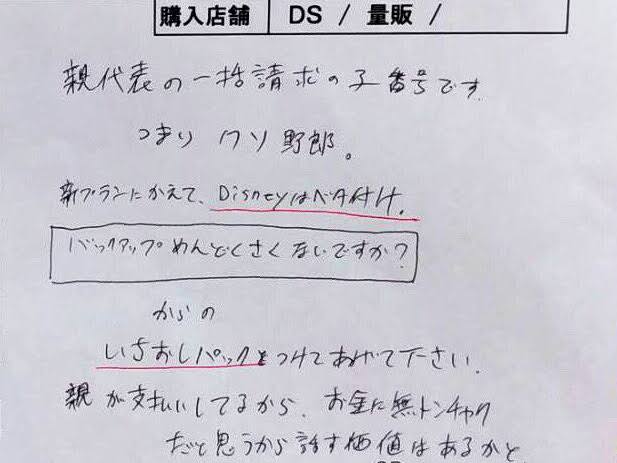 購入店舗 DS / 量販 /
親代表の一括請求の子番号です。
つまり クソ野郎。
新プランにかえて、Disneyはベタ付け。
バックアップめんどくさくないですか?
からの
いちおしパックをつけてあげて下さい。
親が支払いしてるから、お金に無トンチャク
だと思うから話す価値はあるかと